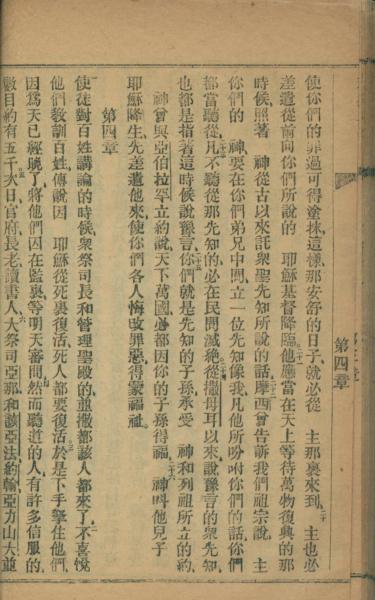 使你們的罪過可得塗抹、這樣、那安舒的日子、就必從　主那裏來到、二十主也必
差遣從前向你們所說的　耶穌基督降臨、二一他應當在天上等待萬物復興的那
時候、照著　神從古以來託衆聖先知所說的話、二二摩西曾告訴我們祖宗說、主
你們的　神、要在你們弟兄中間、立一位先知像我、凡他所吩咐你們的話、你們
都當聽從、二三凡不聽從那先知的、必在民間滅絕、二四從撒母耳以來、說豫言的衆先知、
也都是指著這時候說豫言、二五你們就是先知的子孫、承受　神和列祖所立的約、
神曾與亞伯拉罕立約說、天下萬國、必都因你的子孫得福、二六神叫他兒子
耶穌降生、先差遣他來、使你們各人悔改罪惡、得蒙福祉、
第四章
使徒對百姓講論的時候、衆祭司長和管理聖殿的、並撒都該人都來了、二不喜悅
他們教訓百姓、傳說因　耶穌從死裏復活、死人都要復活、三於是下手拏住他們、
因爲天已經晚了、將他們囚在監裏、等明天審問、四然而聽道的人、有許多信服的、
數目約有五千、五次日、官府長老讀書人、六大祭司亞那、和該亞法約翰亞力山大、並
第四章